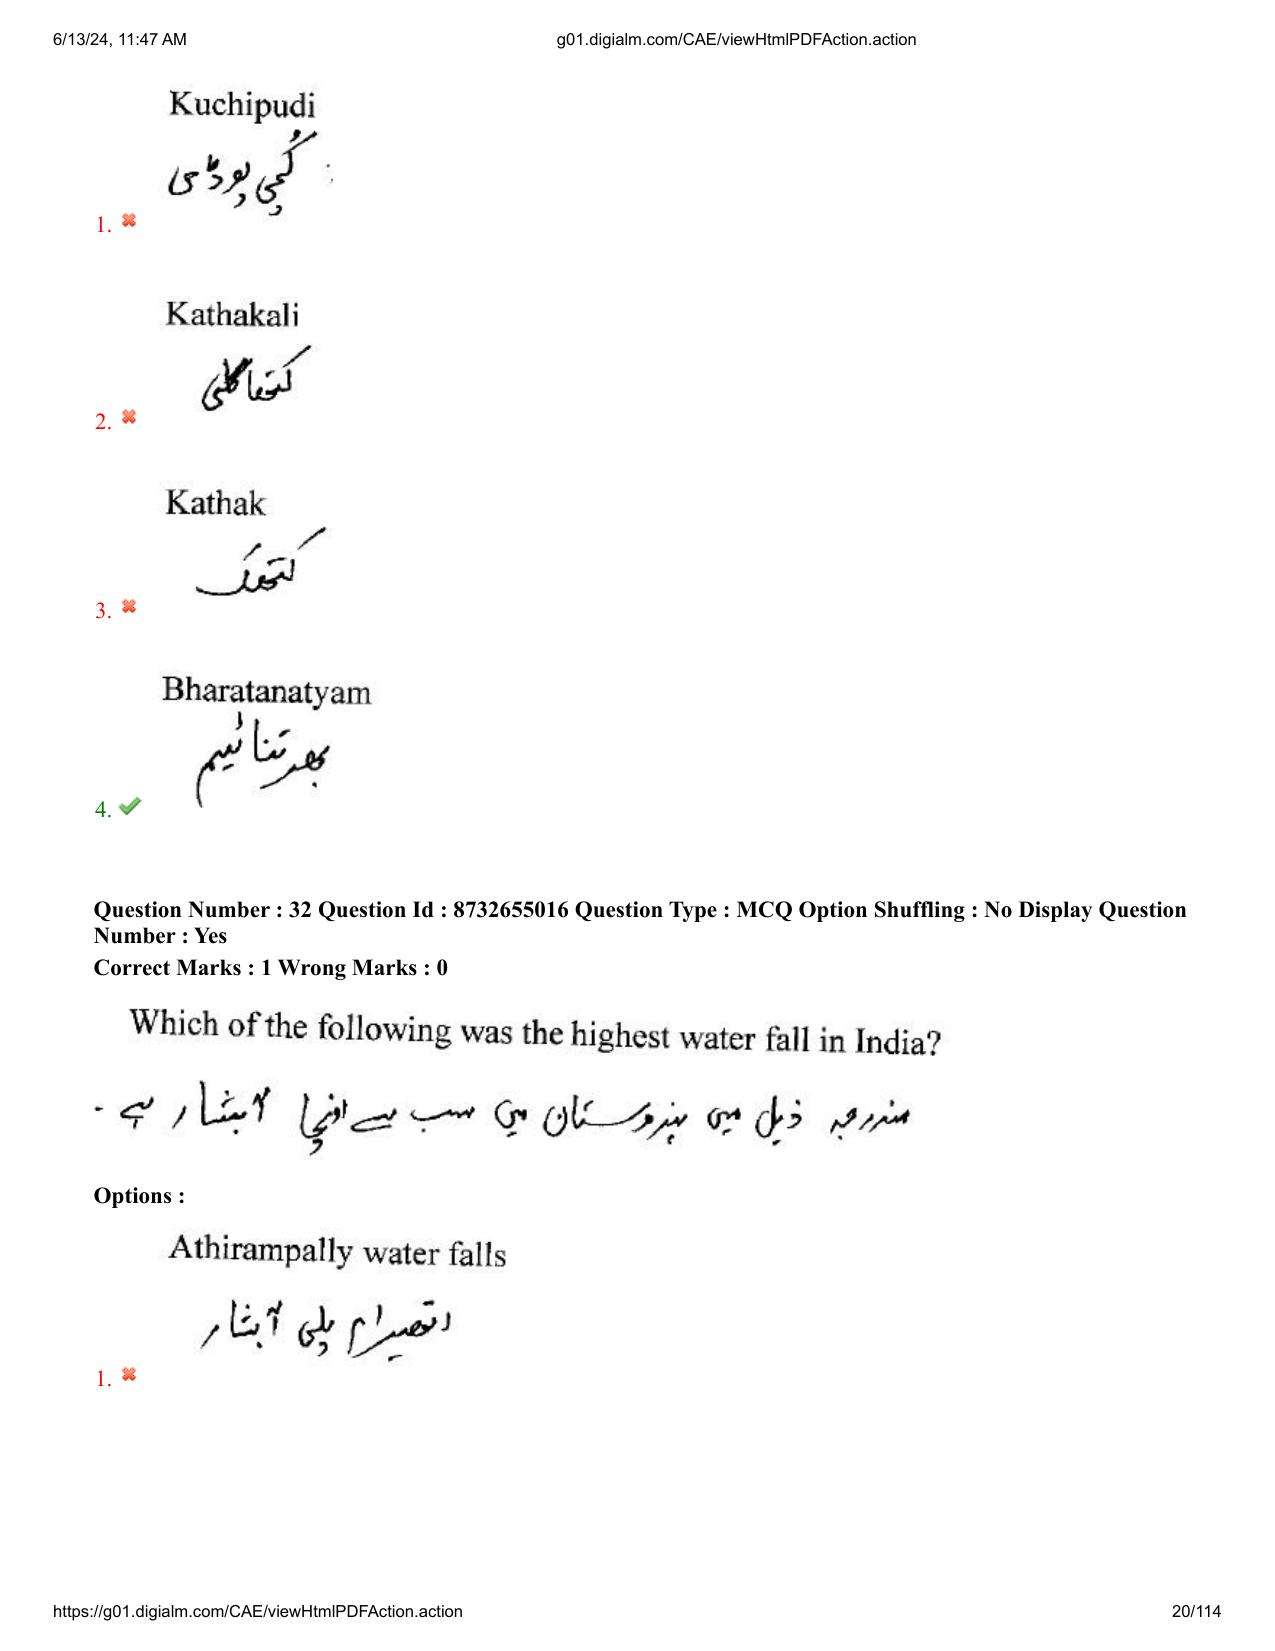 6/13/24, 11:47 AM g01.digialm.com/CAE/viewHtmlPDFAction.action
Kuchipudi
کُچی پوڈی
1.
Kathakali
کتھاکلی
2.
Kathak
کتھک
3.
Bharatanatyam
بھرتناٹیم
4.
Question Number : 32 Question Id : 8732655016 Question Type : MCQ Option Shuffling : No Display Question
Number : Yes
Correct Marks : 1 Wrong Marks : 0
Which of the following was the highest water fall in India?
مندرجہ ذیل میں ہندوستان میں سب سے اونچا آبشار ہے -
Options :
Athirampally water falls
اتھیرام پلی آبشار
1.
https://g01.digialm.com/CAE/viewHtmlPDFAction.action 20/114